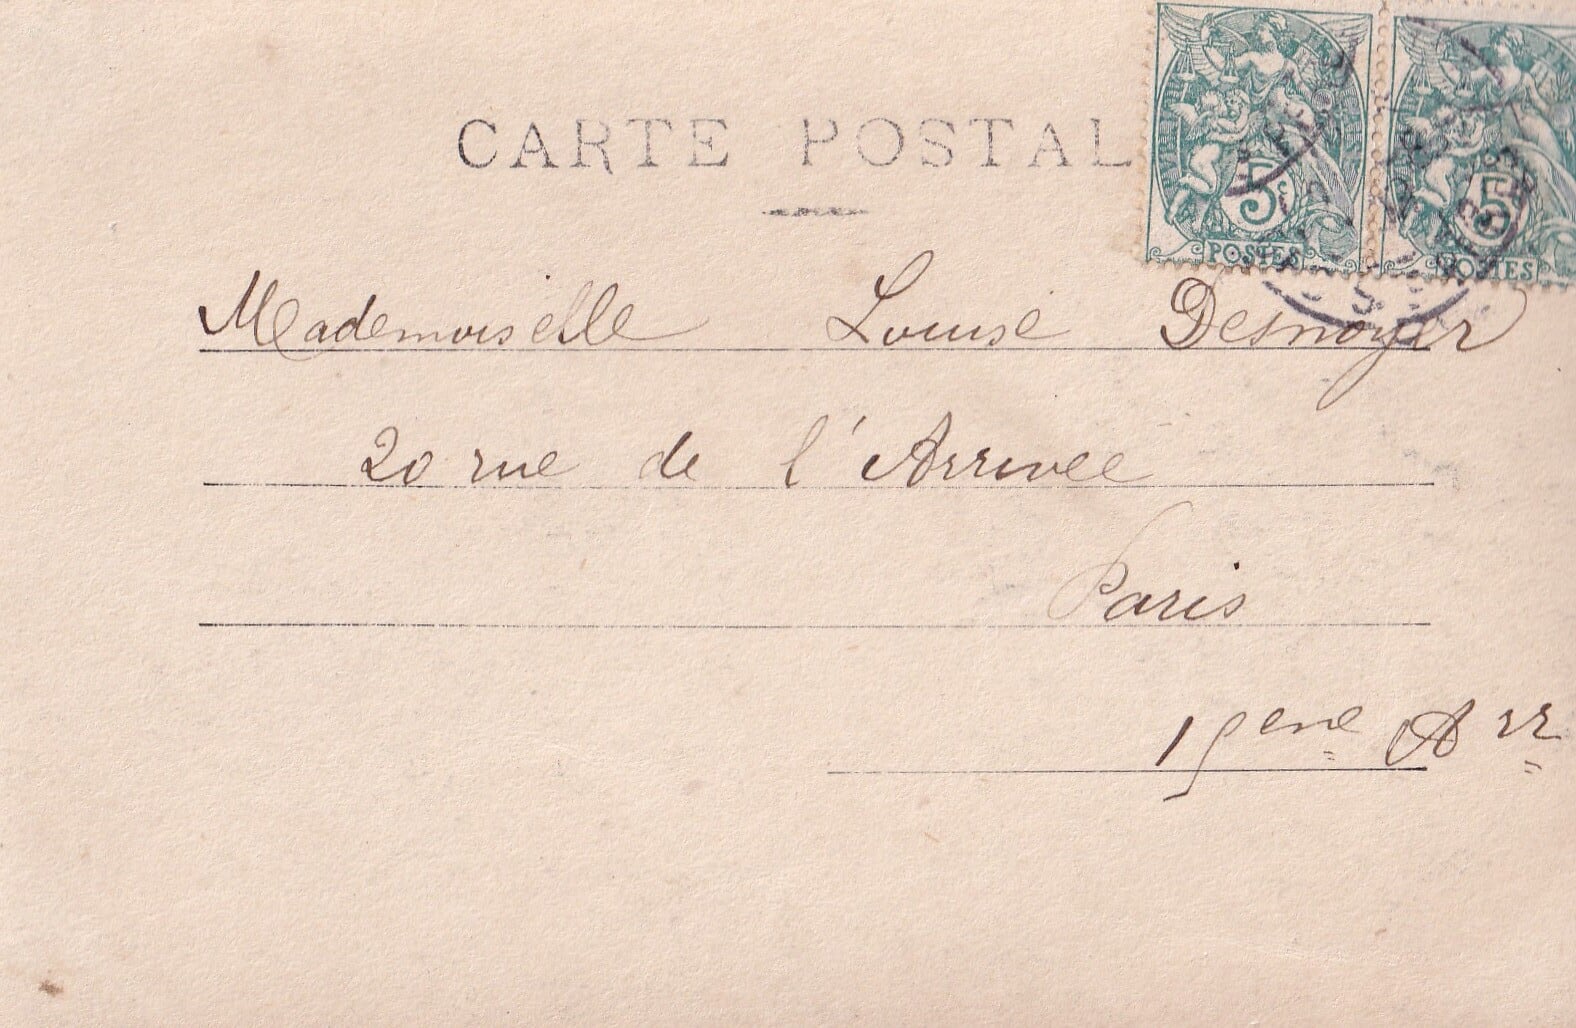 CARTE POSTAL
5c
POSTES
5
POSTES
Mademoiselle Louise Desnoyer
20 rue de l'Arrivée
Paris
15ème Arr